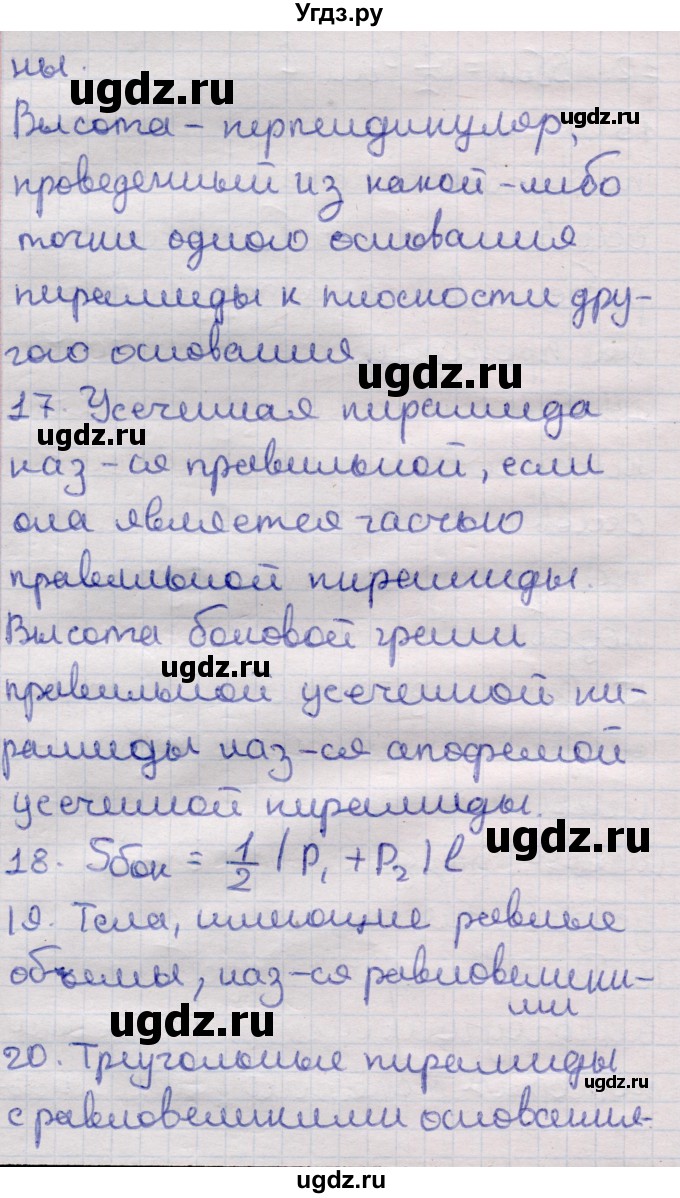 Угдз.ру
ны.
ugdz.ru
Высота – перпендикуляр,
ugdz.ru
проведенный из какой-либо
точки одного основания
пирамиды к плоскости дру-
гого основания.
ugdz.ru
17. Усеченная пирамида
ugdz.ru
наз-ся правильной, если
она является частью
ugdz.ru
правильной пирамиды.
Высота боковой грани
ugdz.ru
правильной усеченной пи-
рамиды наз-ся апофемой
усеченной пирамиды.
ugdz.ru
18. Sбок = 1/2 (P₁ + P₂) l
19. Тела, имеющие равные
объемы, наз-ся равновелики-
ми
ugdz.ru
20. Треугольные пирамиды
ugdz.ru
с равновеликими основания-
ugdz.ru